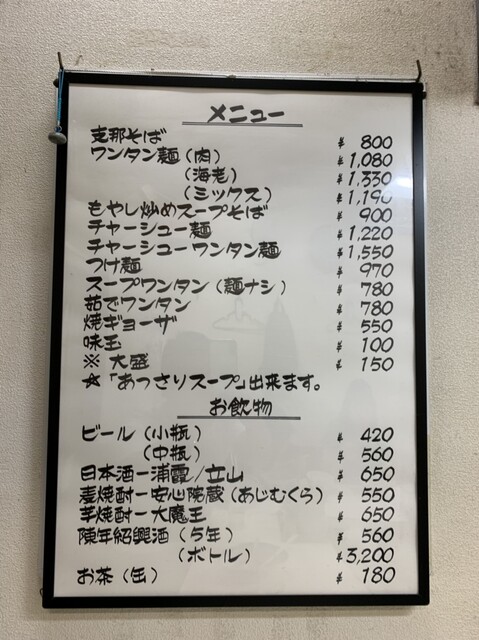 メニュー
支那そば ¥ 800
ワンタン麺(肉) ¥ 1,080
(海老) ¥ 1,330
(ミックス) ¥ 1,190
もやし炒めスープそば ¥ 900
チャーシュー麺 ¥ 1,220
チャーシューワンタン麺 ¥ 1,550
つけ麺 ¥ 970
スープワンタン(麺ナシ) ¥ 780
茹でワンタン ¥ 780
焼ギョーザ ¥ 550
味玉 ¥ 100
※ 大盛 ¥ 150
☆「あっさりスープ」出来ます。
お飲物
ビール(小瓶) ¥ 420
(中瓶) ¥ 560
日本酒ー浦霞/立山 ¥ 650
麦焼酎ー安心院蔵(あじむくら) ¥ 550
芋焼酎ー大魔王 ¥ 650
陳年紹興酒(5年) ¥ 560
(ボトル) ¥3,200
お茶(缶) ¥ 180